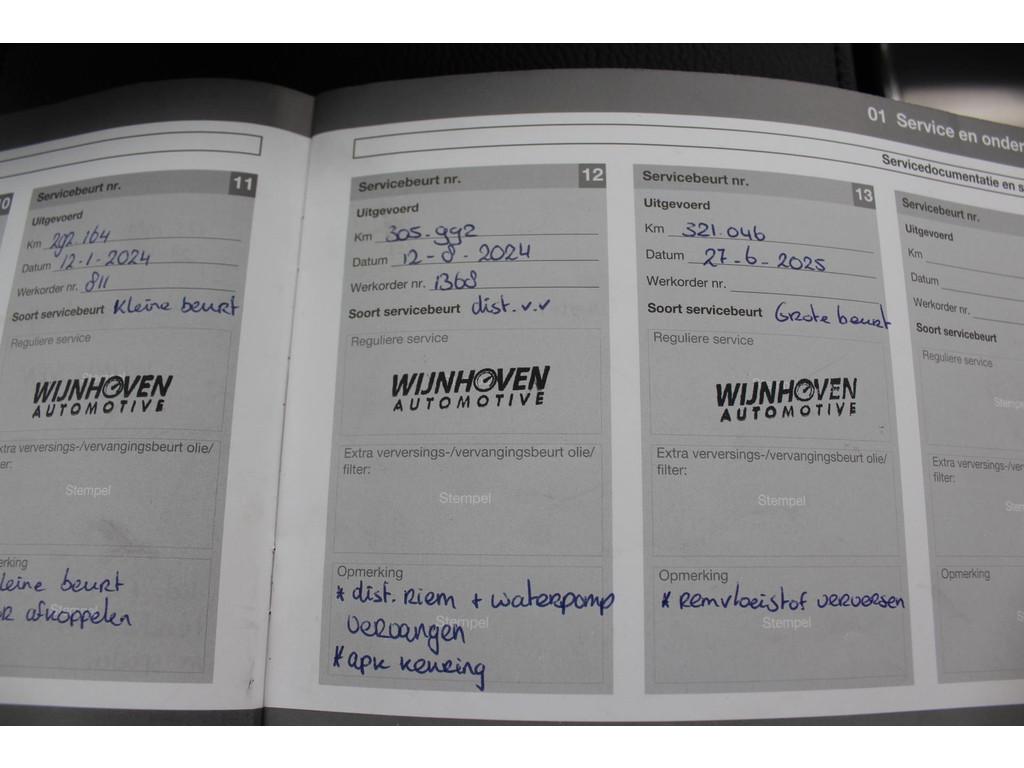 01 Service en onder
Servicedocumentatie en s
0
Servicebeurt nr. 11
Uitgevoerd
Km 292.164
Datum 12-1-2024
Werkorder nr. 811
Soort servicebeurt Kleine beurt
Reguliere service
WIJNHOVEN
AUTOMOTIVE
xtra verversings-/vervangingsbeurt olie/
er:
Stempel
erking
leine beurt
afkoppelen
Servicebeurt nr. 12
Uitgevoerd
Km 305.992
Datum 12-8-2024
Werkorder nr. 1368
Soort servicebeurt dist. v.v
Reguliere service
WIJNHOVEN
AUTOMOTIVE
Extra verversings-/vervangingsbeurt olie/
filter:
Stempel
Opmerking
* dist. Riem + waterpomp
vervangen
Stempel
* apk keuring
Servicebeurt nr. 13
Uitgevoerd
Km 321.046
Datum 27-6-2025
Werkorder nr.
Soort servicebeurt Grote beurt
Reguliere service
WIJNHOVEN
AUTOMOTIVE
Extra verversings-/vervangingsbeurt olie/
filter:
Stempel
Opmerking
* Remvloeistof verversen
Stempel
Servicebeurt nr.
Uitgevoerd
Km
Datum
Werkorder nr.
Soort servicebeurt
Reguliere service
Stemp
Extra verversings-/verv
filter:
Sten
Opmerking